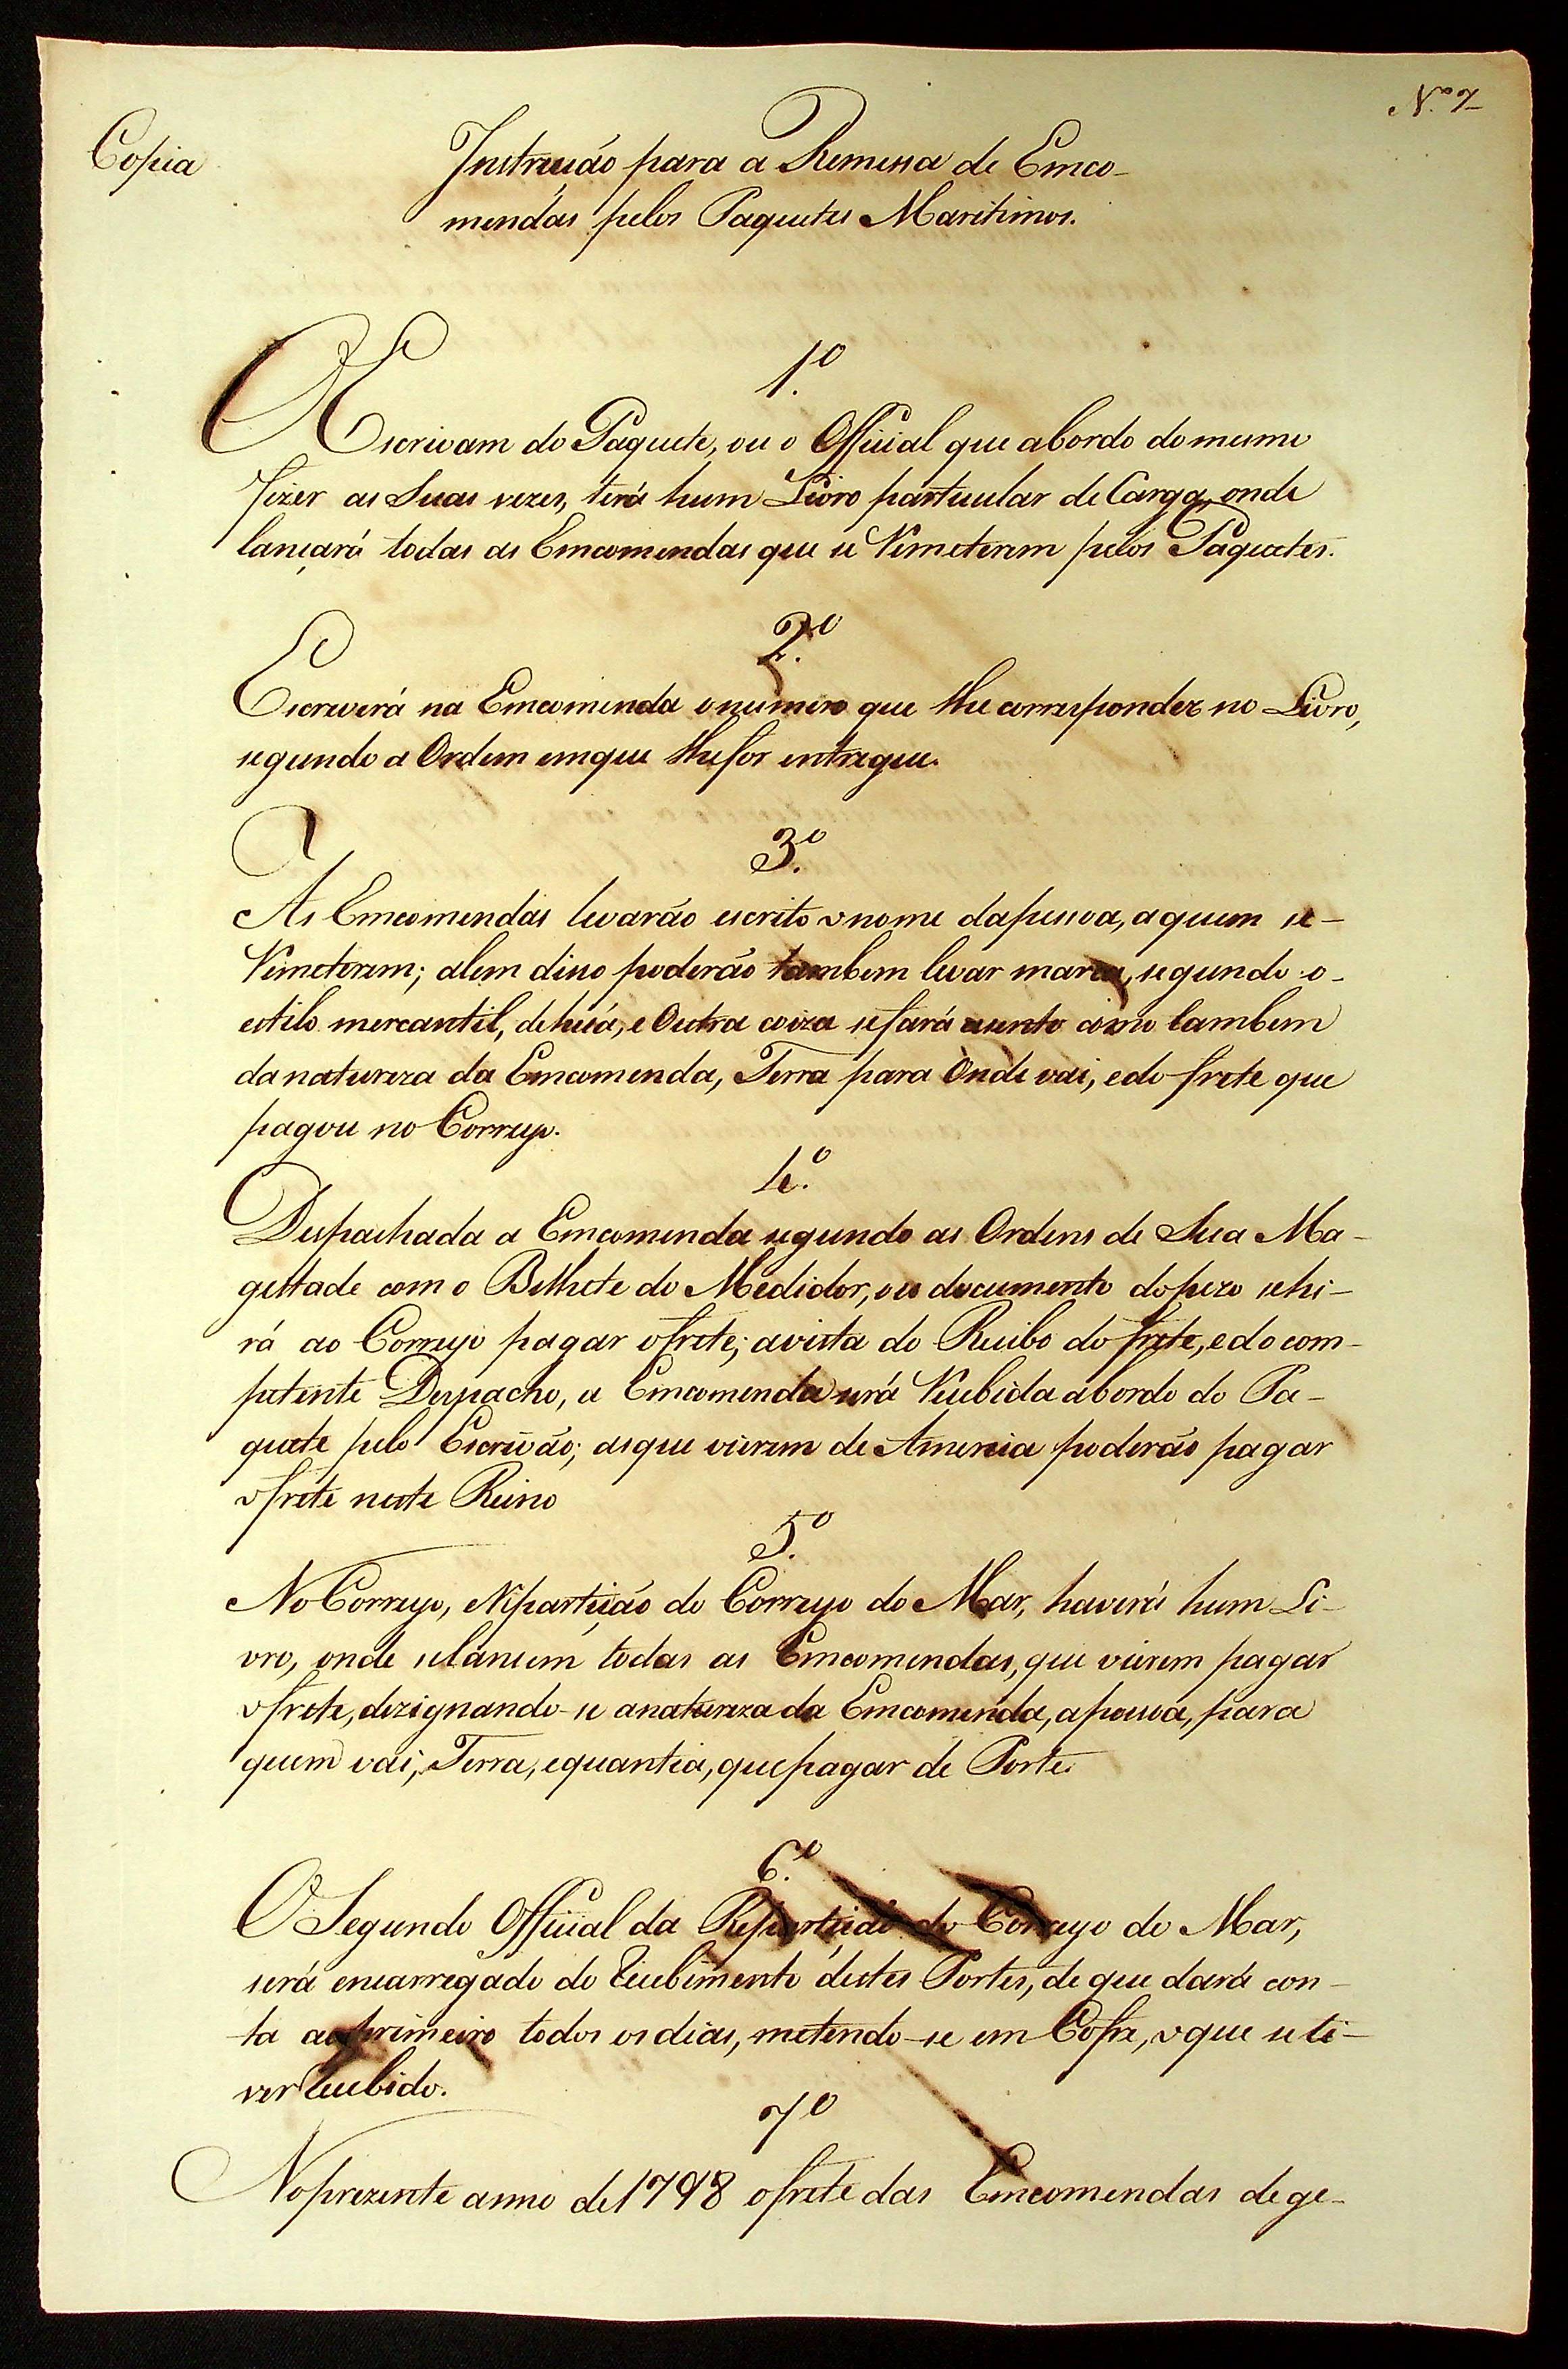 N.º 7
Copia
Instrucção para a Remessa de Emco-
mendas pelos Paquetes Maritimos.
1.º
O Escrivam do Paquete, ou o Official que abordo do mesmo
fizer as Suas vezes, terá hum Livro particular de Carga, onde
lançará todas as Emcomendas que se Remeterem pelos Paquetes.
2.º
Escreverá na Emcomenda o numero que lhe corresponder no Livro,
segundo a Ordem emque lhe for entregue.
3.º
As Emcomendas levarão escrito o nome dapessoa, aquem se-
Remeterem; alem disso poderão tambem levar marca, segundo o-
estilo mercantil, dehuá, e Outra coiza sefará asento como tambem
danatureza da Emcomenda, Terra para Onde vai, edo frete que
pagou no Correyo.
4.º
Despachada a Emcomenda segundo as Ordens de Sua Ma-
gestade com o Bilhete do Medidor, ou documento dopezo sehi-
rá ao Correyo pagar ofrete; avista do Recibo do frete, edo com-
petente Despacho, a Emcomenda será Recebida abordo do Pa-
quete pelo Escrivão; asque vierem de America poderão pagar
ofrete neste Reino
5.º
No Correyo, Repartição do Correyo do Mar, haverá hum Li-
vro, onde selansem todas as Emcomendas, que vierem pagar
ofrete, dezignando-se anatureza da Emcomenda, apessoa, para
quem vai, Terra, equantia, quepagar de Porte.
6.º
O Segundo Official da Repartição do Correyo do Mar,
será encarregado do Recebimento destes Portes, de que dará con-
ta aoprimeiro todos osdias, metendo-se em Cofre, oque seti-
ver Recebido.
7º
Noprezente anno de1798 ofrete das Emcomendas de ge-